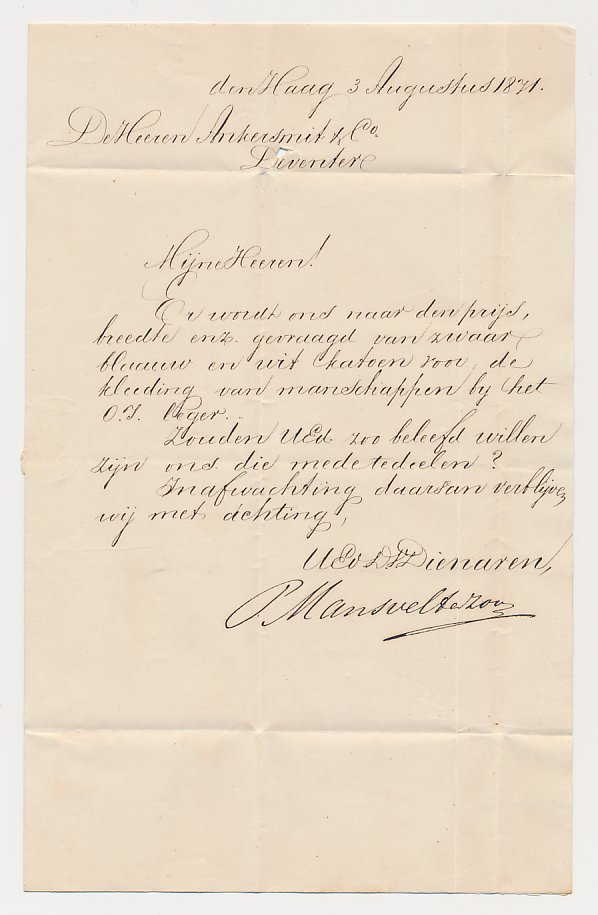 den Haag 3 Augustus 1871.
De Heeren Ankersmit & Co.
Deventer
Mijne Heeren!
Er wordt ons naar den prijs,
breedte enz. gevraagd van zwaar
blaauw en wit katoen voor de
kleeding van manschappen by het
O.I. Leger.
Zouden UEd. zoo beleefd willen
zijn ons die mede te deelen?
In afwachting daarvan verblijven
wij met achting,
UEd DW Dienaren,
P. Mansvelt & Zoon